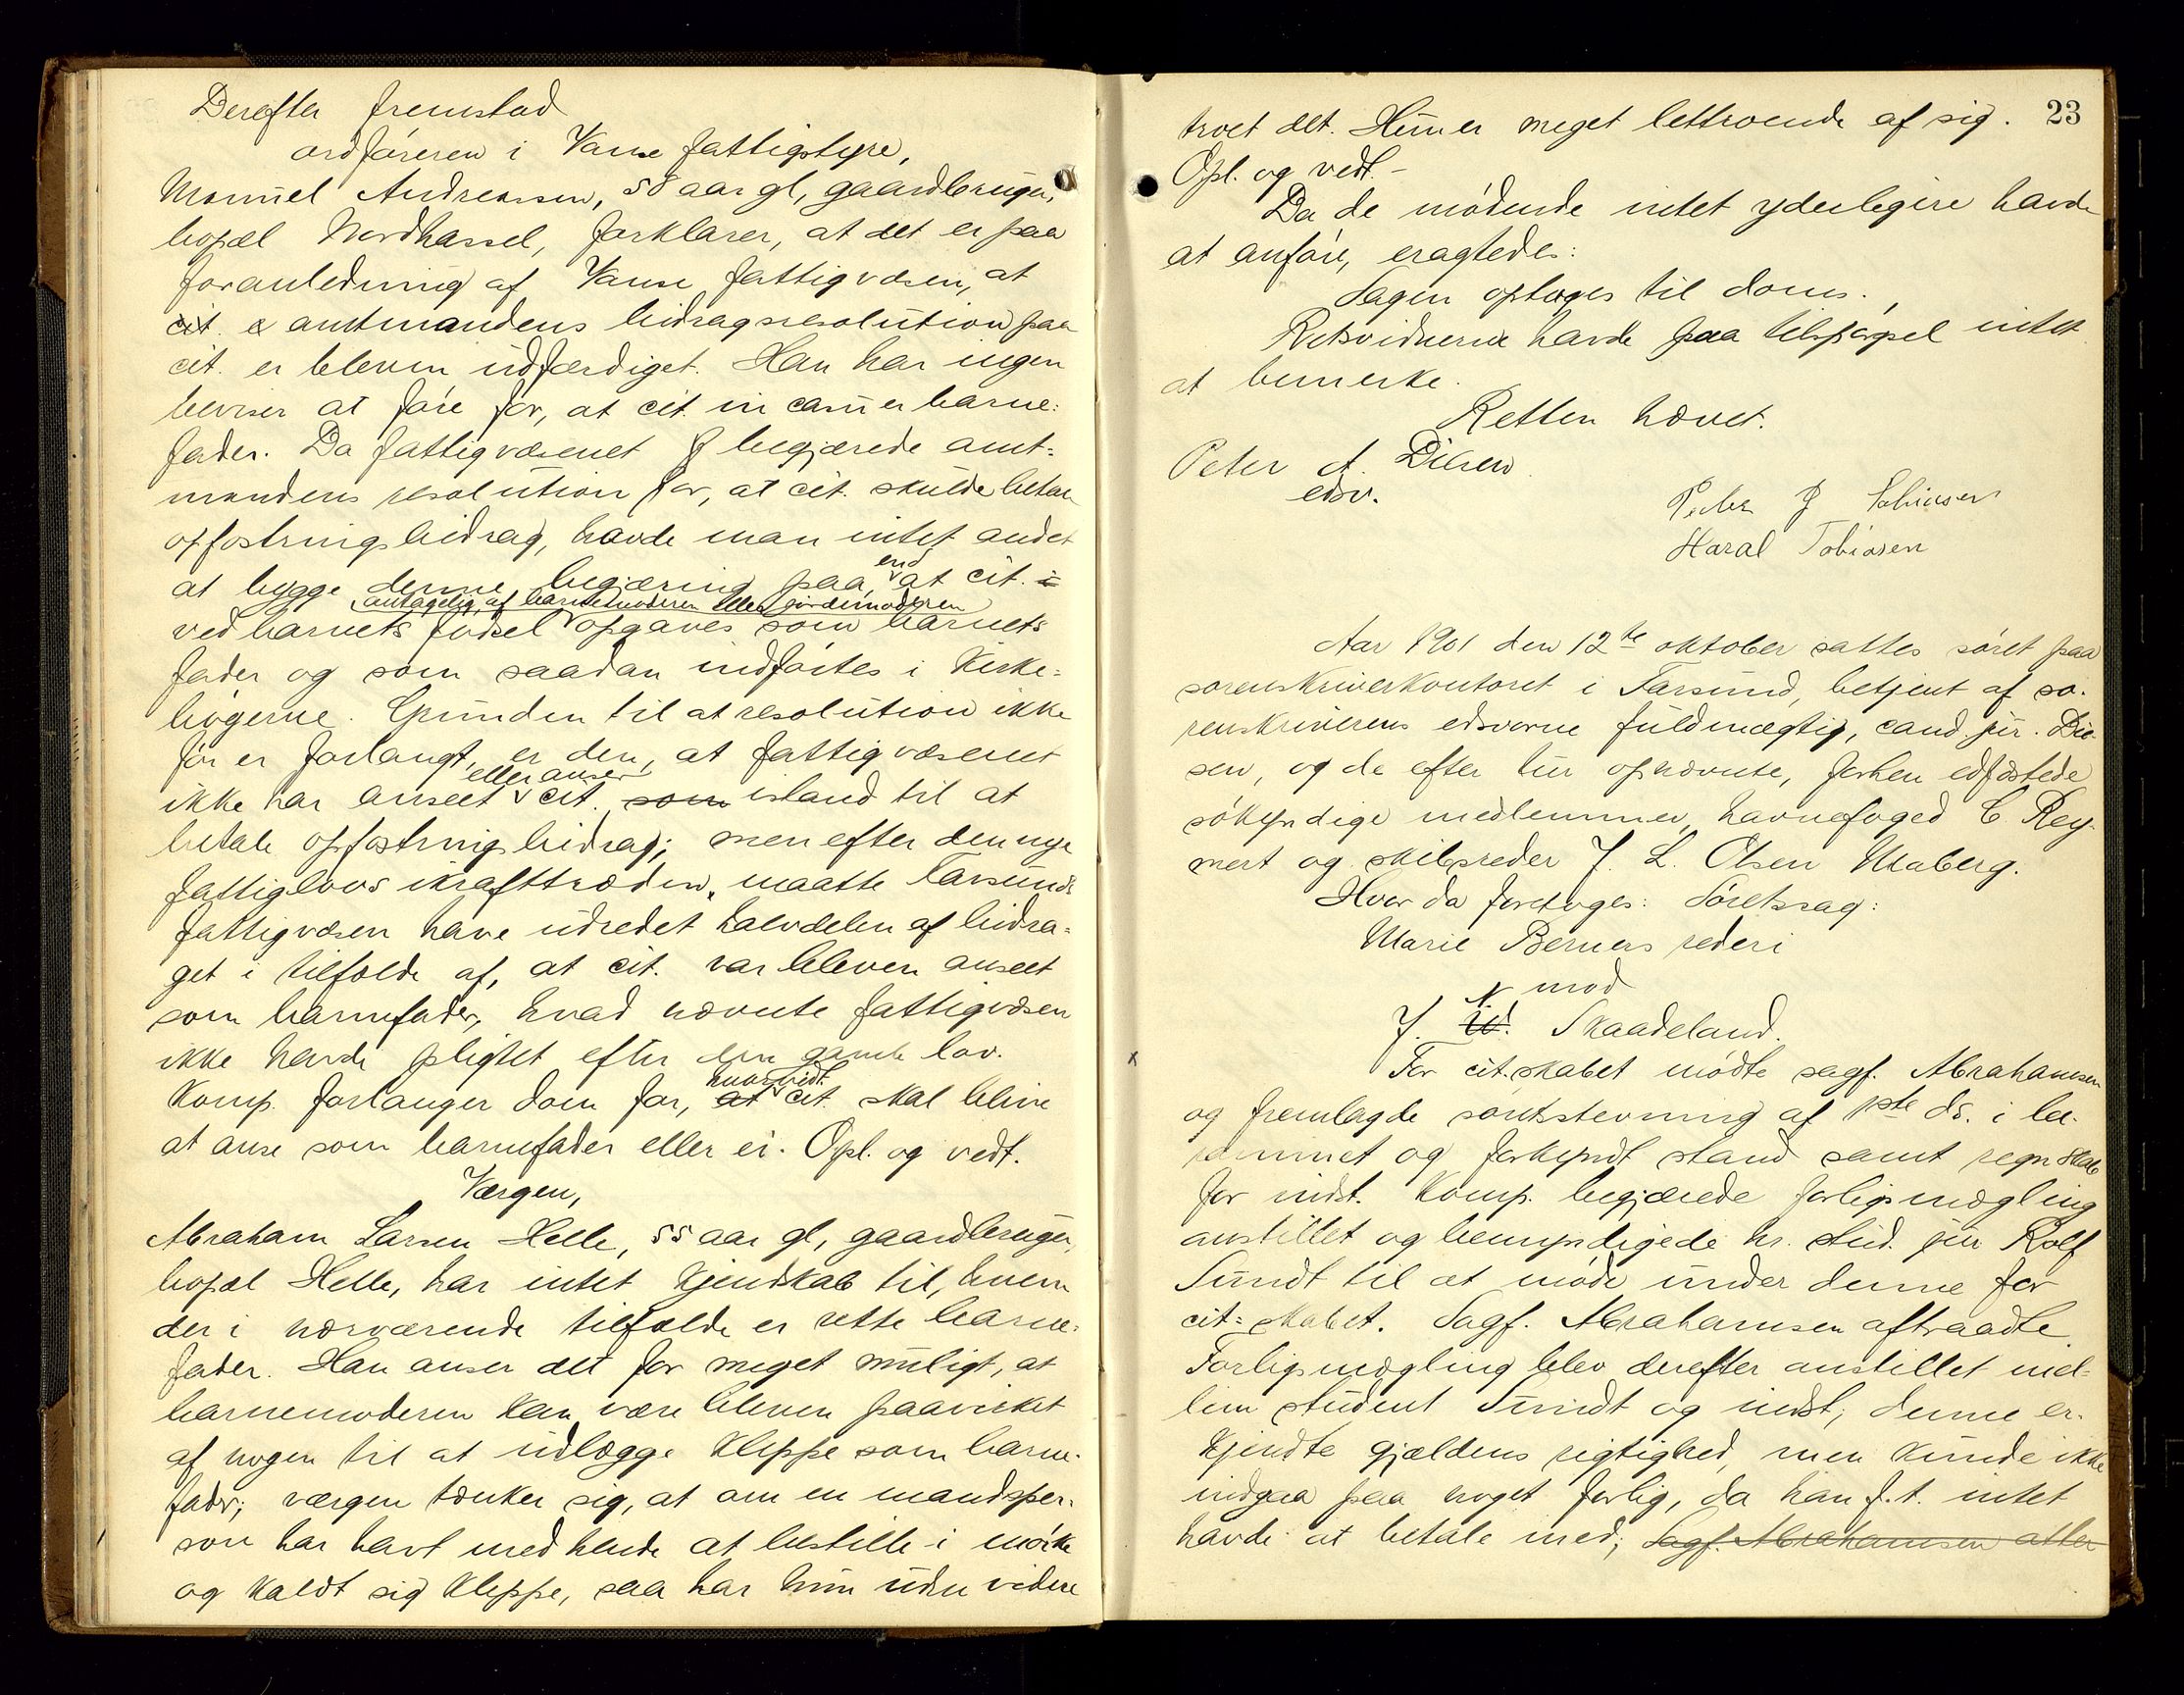 Derefter fremstod
ordføreren i Vanse fattigstyre,
Manuel Andreassen, 58 aar gl, gaardbruger,
bopæl Nordhassel, forklarer, at det er paa
foranledning af Vanse fattigvæsen, at
cit. e amtmandens bidragsresolution paa
cit. er bleven udfærdiget. Han har ingen
beviser at føre for, at cit. in casu er barne-
fader. Da fattigvæsenet f begjærede amt-
mandens resolution for, at cit. skulde betale
opfostringsbidrag, havde man intet andet
at bygge denne begjæring paa, end at cit. i
ved barnets fødsel antagelig af barnemoderen eller jordemoderen opgaves som barnets
fader og som saadan indførtes i kirke-
bøgerne. Grunden til at resolution ikke
før er forlangt, er den, at fattigvæsenet
ikke har anseet eller anser cit. som istand til at
betale opfostringsbidrag; men efter den nye
fattiglovs ikrafttræden, maatte Farsunds
fattigvæsen have udredet halvdelen af bidra-
get i tilfælde af, at cit. var bleven anseet
som barnefader, hvad nævnte fattigvæsen
ikke havde pligtet efter den gamle lov.
Komp. forlanger dom for, at hvorvidt cit. skal blive
at anse som barnefader eller ei. Opl. og vedt.
Værgen,
Abraham Larsen Helle, 55 aar gl, gaardbruger,
bopæl Helle, har intet kjendskab til, hvem
der i nærværende tilfælde er rette barne-
fader. Han anser det for meget muligt, at
barnemoderen kan være bleven paavirket
af nogen til at udlægge Kleppe som barne-
fader; værgen tænker sig, at om en mandsper-
son har havt med hende at bestille i mørke
og kaldt sig Kleppe, saa har hun uden videre
23
troet det. Hun er meget lettroende af sig.
Opl. og vedt. -
Da de mødende intet yderligere havde
at anføre, eragtedes:
Sagen optages til doms.
Retsvidnerne havde paa tilspørgsel intet
at bemerke.
Retten hævet.
Peter A. Diesen
edsv.
Peder J
Haral Tobiasen
Aar 1901 den 12te oktober sattes søret paa
sorenskriverkontoret i Farsund, betjent af so-
renskriverens edsvorne fuldmægtig, cand. jur. Die-
sen, og de efter tur opnævnte, forhen edfæstede
søkyndige medlemmer, havnefoged C. Rey-
mert og skibsreder J. L. Olsen Maberg.
Hvor da foretoges: Søretssag:
Marie Berners rederi
mod
J. W. N. Skaadeland.
For cit.skabet mødte sagf. Abrahamsen
og fremlagde søretsstevning af 1ste ds. i be-
rammet og forkyndt stand samt regnskab
for indst. Komp. begjærede forligsmægling
anstillet og bemyndigede hr. stud. jur Rolf
Sundt til at møde under denne for
cit-skabet. Sagf. Abrahamsen aftraadte
Forligsmægling blev derefter anstillet mel-
lem student Sundt og indst; denne er-
kjendte gjældens rigtighed, men kunde ikke
indgaa paa noget forlig, da han f.t. intet
havde at betale med; Sagf. Abrahamsen atter